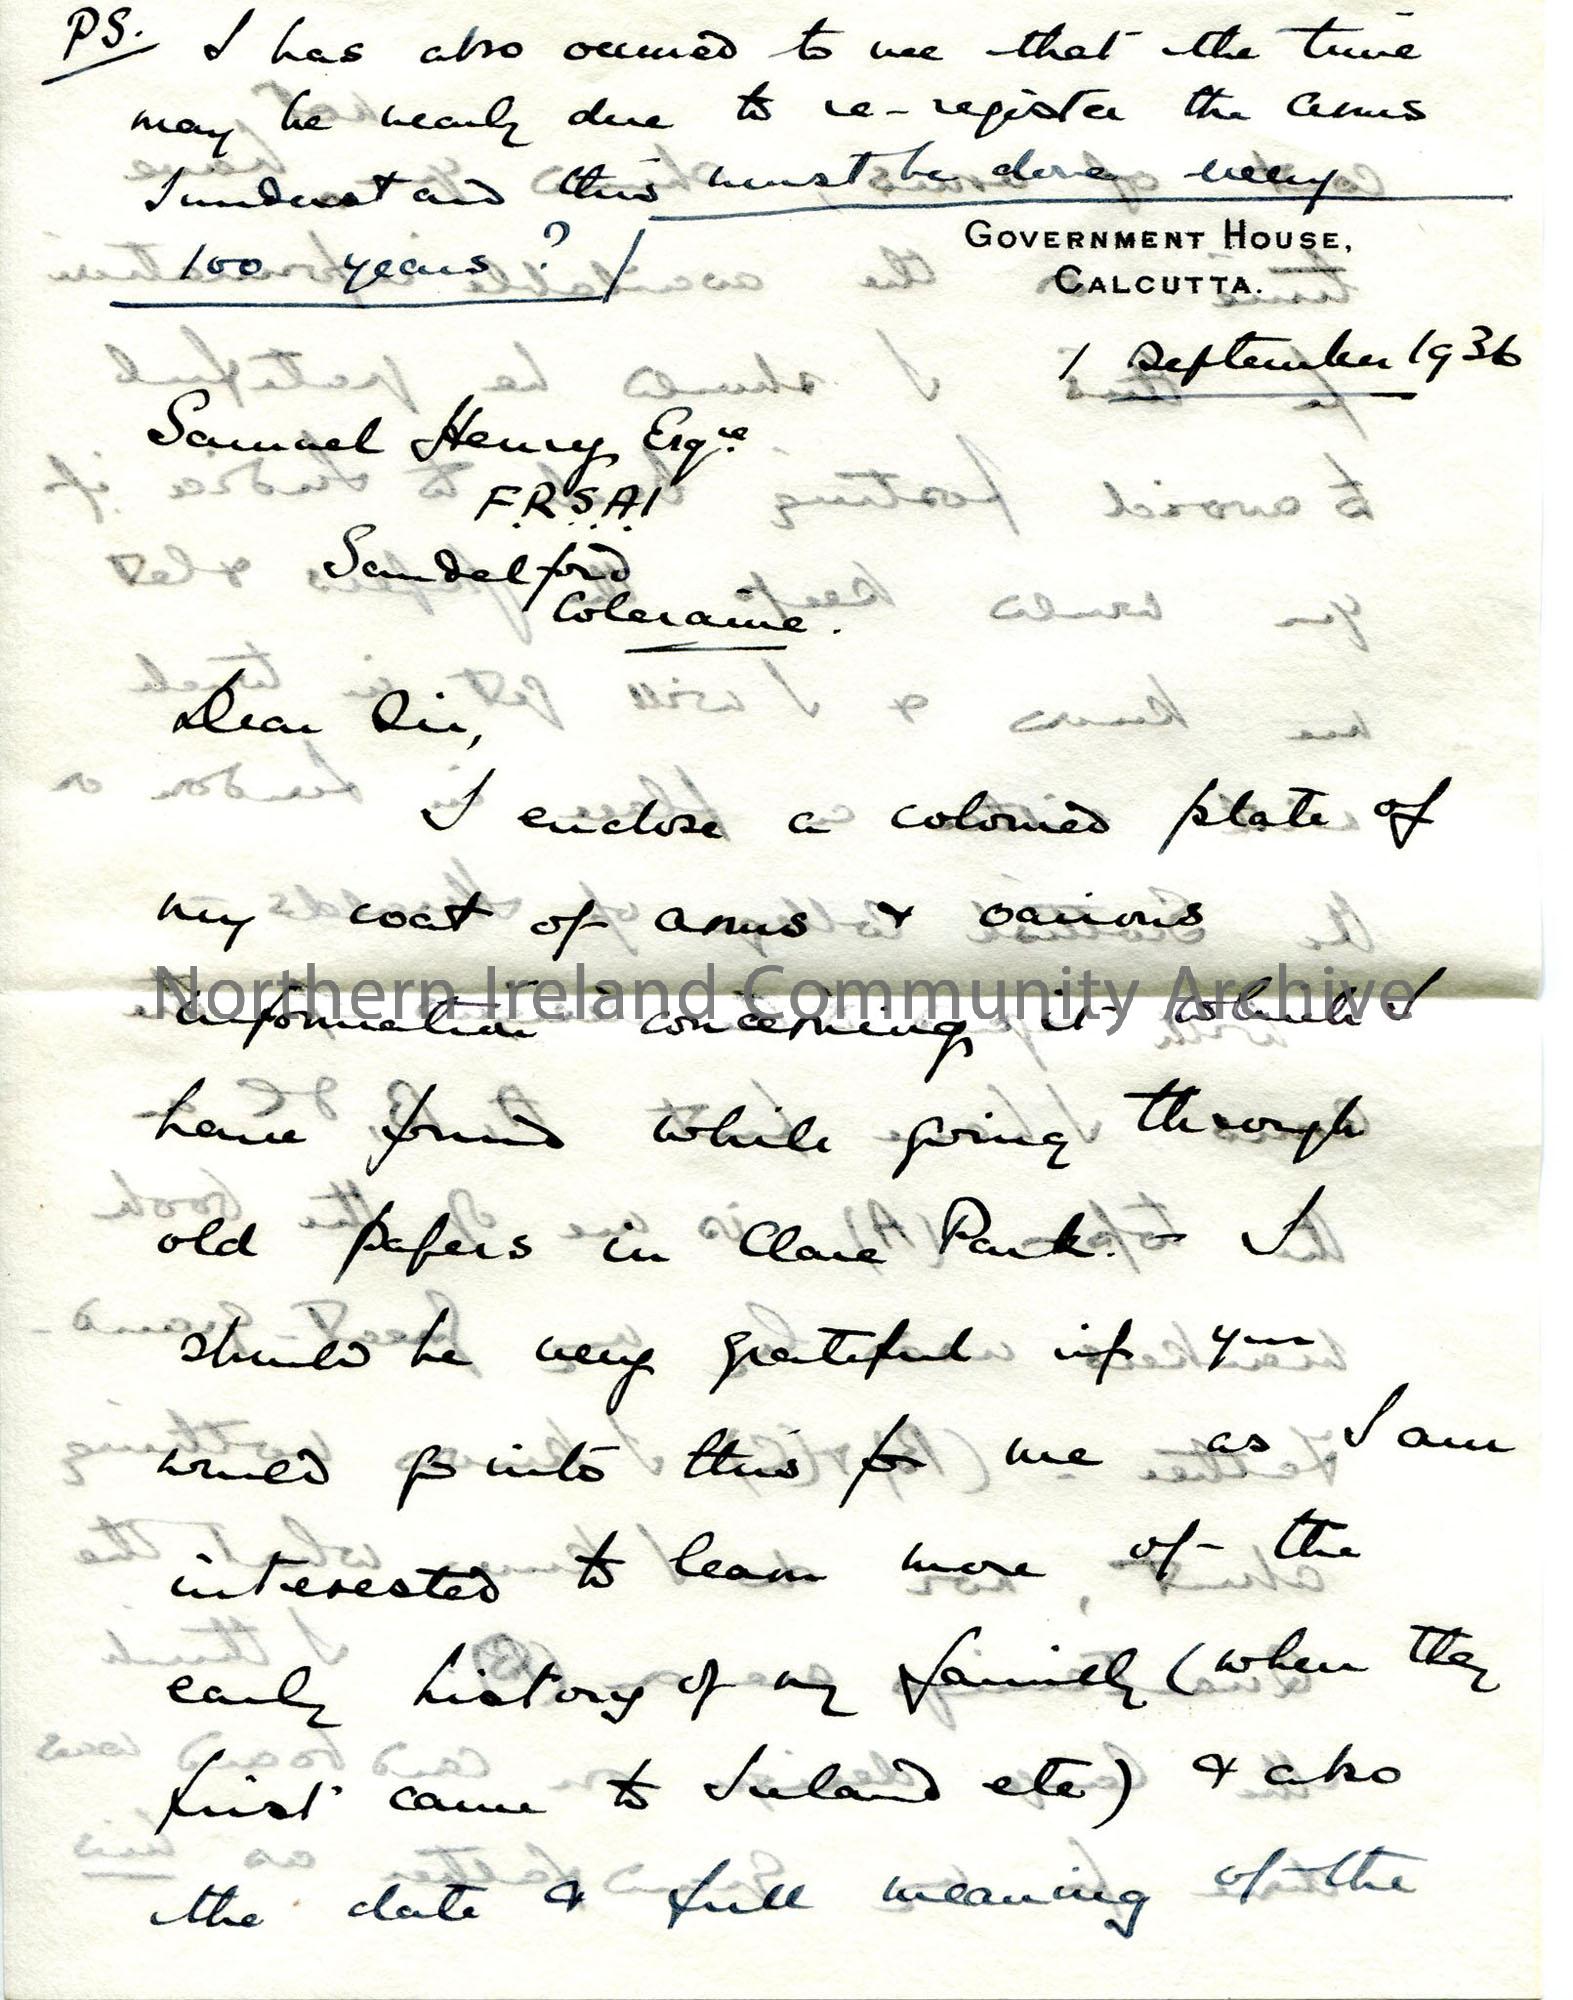 PS. I has also occurred to me that the time
may be nearly due to re-register the arms
I understand this must be done every
100 years?
GOVERNMENT HOUSE,
CALCUTTA.
1 September 1936
Samuel Henry Esqre.
F.R.S.A.I
Sandelford
Coleraine.
Dear Sir,
I enclose a coloured plate of
my coat of arms & various
information concerning it which I
Northern Ireland Community Archive
have found while going through
old papers in Clare Park. - I
should be very grateful if you
would go into this for me as I am
interested to learn more of the
early history of my family (when they
first came to Ireland etc) & also
the date & full meaning of the